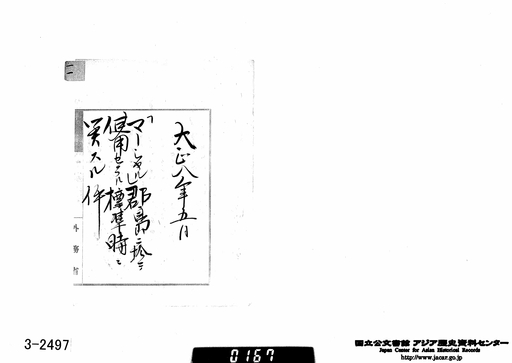 大正八年五月
「マーシャル」郡島ニ於テ
使用セラル標準時ニ
関スル件
外務省
3-2497
0167
国立公文書館 アジア歴史資料センター
Japan Center for Asian Historical Records
http://www.jacar.go.jp